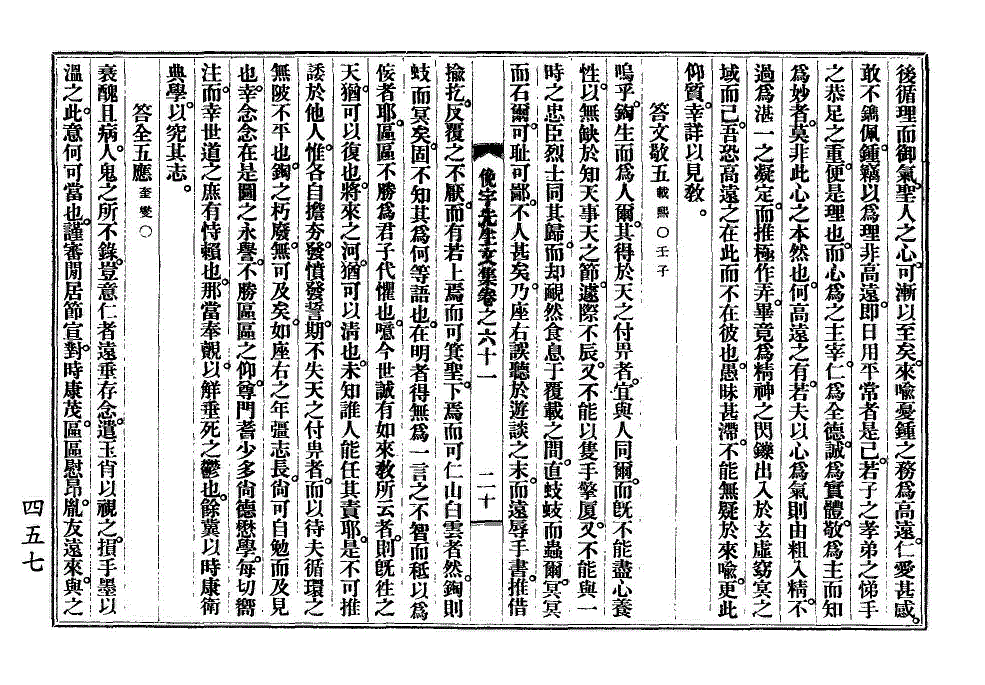 後循理而御氣。聖人之心。可漸以至矣。來喩憂鍾之務爲高遠。仁愛甚感。
敢不鐫佩。鍾竊以爲理非高遠。卽日用平常者是已。若子之孝弟之悌手
之恭足之重。便是理也。而心爲之主宰。仁爲全德。誠爲實體。敬爲主而知
爲妙者。莫非此心之本然也。何高遠之有。若夫以心爲氣。則由粗入精。不
過爲湛一之凝定。而推極作弄。畢竟爲精神之閃鑠出入於玄虛窈冥之
域而已。吾恐高遠之在此而不在彼也。愚昧甚滯。不能無疑於來喩。更此
仰質。幸詳以見敎。
答文敬五 載熙○壬子
嗚乎。鋾生而爲人爾。其得於天之付畀者。宜與人同爾。而旣不能盡心養
性。以無缺於知天事天之節。遽際不辰。又不能以隻手擎廈。又不能與一
時之忠臣烈士同其歸。而却靦然食息于覆載之間。直蚑蚑而蟲爾。冥冥
而石爾。可耻可鄙。不人甚矣。乃座右誤聽於遊談之末。而遠辱手書。推借
俛宇先生文集卷之六十一
二十
揄扢。反覆之不厭。而有若上焉而可箕聖。下焉而可仁山白雲者然。鋾則
蚑而冥矣。固不知其爲何等語也。在明者得無爲一言之不智而秪以爲
侫者耶。區區不勝爲君子代懼也。噫今世誠有如來敎所云者。則旣徃之
天。猶可以復也。將來之河。猶可以淸也。未知誰人能任其責耶。是不可推
諉於他人。惟各自擔夯。發憤發誓。期不失天之付畀者。而以待夫循環之
無陂不平也。鋾之朽廢。無可及矣。如座右之年彊志長。尙可自勉而及見
也。幸念念在是圖之永譽。不勝區區之仰。尊門耆少多尙德懋學。每切嚮
注。而幸世道之庶有恃賴也。那當奉覿。以觧垂死之鬱也。餘冀以時康衛
典學。以究其志。
答全五應 奎燮○
衰醜且病。人鬼之所不錄。豈意仁者遠垂存念。遣玉肖以視之。損手墨以
溫之。此意何可當也。謹審閒居節宣。對時康茂。區區慰昻。胤友遠來。與之
四五七